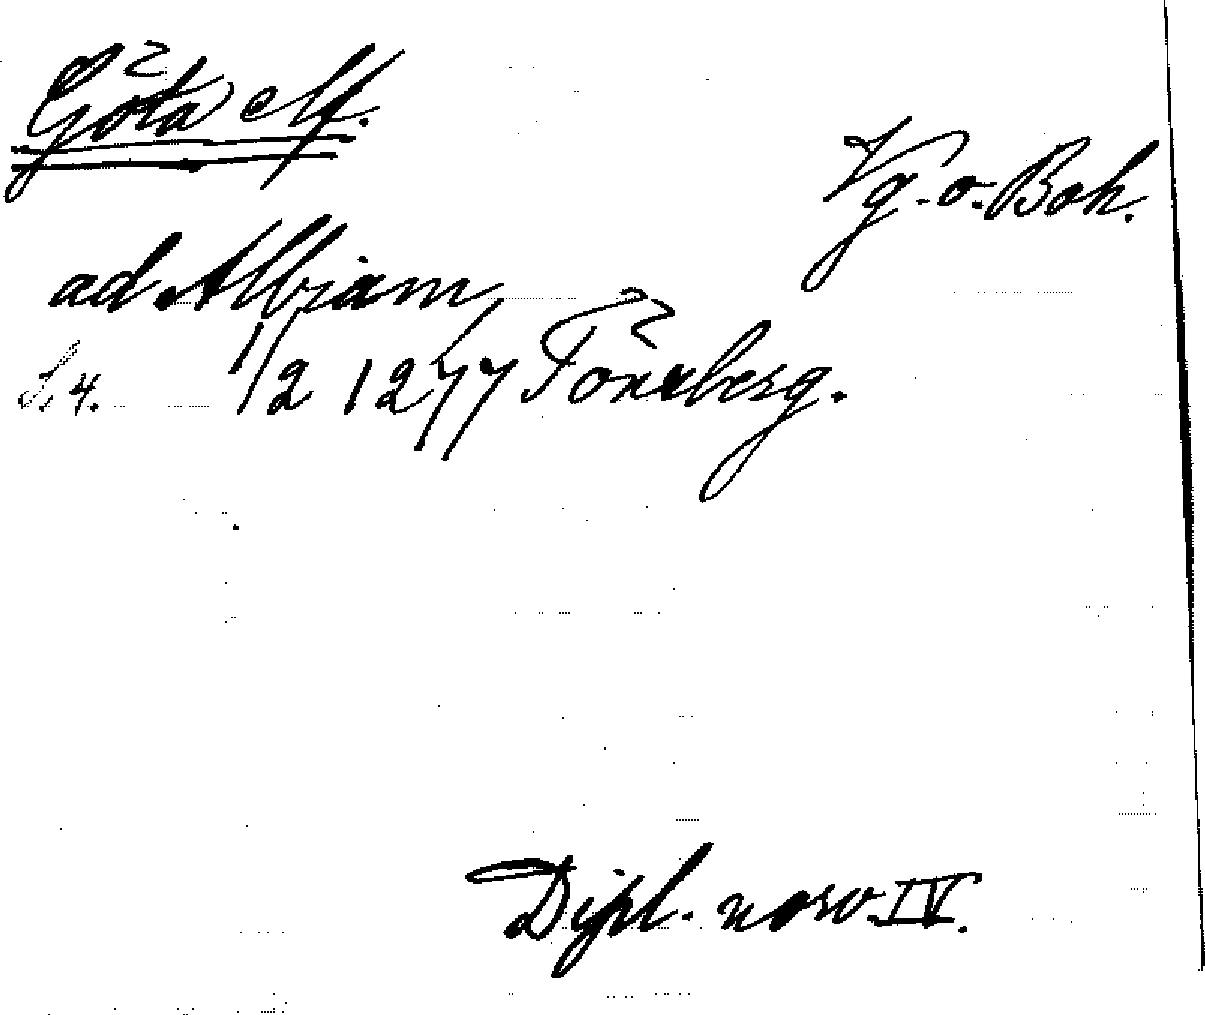 Göta elf.
Vg. o. Boh.
ad Albiam
S. 4. 1/2 1277 Tönsberg.
Dipl. norv. IV.